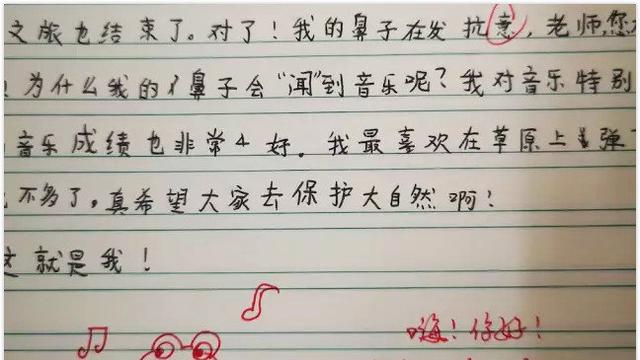 文旅也结束了。对了！我的鼻子在发抗意，老师,您
为什么我的鼻子会“闻”到音乐呢？我对音乐特别
音乐成绩也非常好。我最喜欢在草原上弹
不多了。真希望大家去保护大自然啊！
这就是我！
嗨！你好！